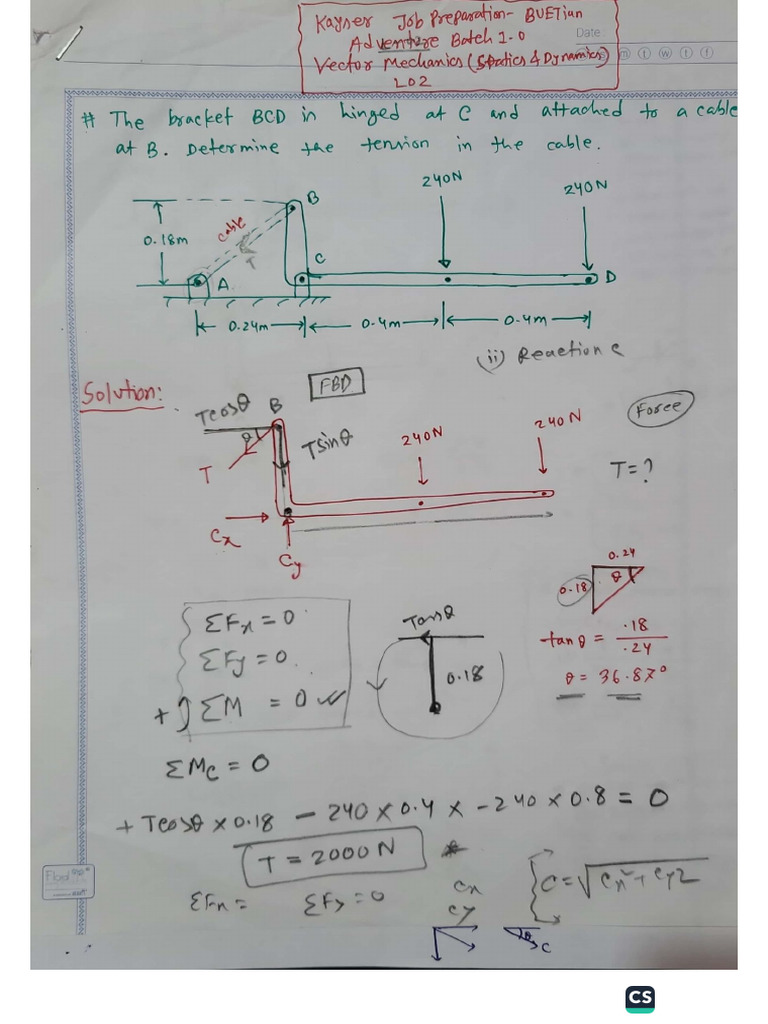 Kayser Job Preparation- BUETian
Adventure Batch 1.0
Date:
Vector Mechanics (Statics & Dynamics)
L02
# The bracket BCD in hinged at C and attached to a cable
at B. Determine the tension in the cable.
240N
240N
B
cable
0.18m
T
C
A
D
0.24m
0.4m
0.4m
(ii) Reaction C
Solution:
FBD
Tcosθ
B
Force
θ
Tsinθ
240N
240N
T
T=?
Cx
Cy
0.24
0.18
θ
ΣFx=0
Tcosθ
tanθ = .18/.24
ΣFy=0
0.18
θ = 36.87°
+ ΣM = 0
ΣMC = 0
+ Tcosθ × 0.18 - 240 × 0.4 × -240 × 0.8 = 0
T = 2000N
ΣFx = ΣFy = 0
Cx
Cy
C=√Cx²+Cy2
θ
C
CS